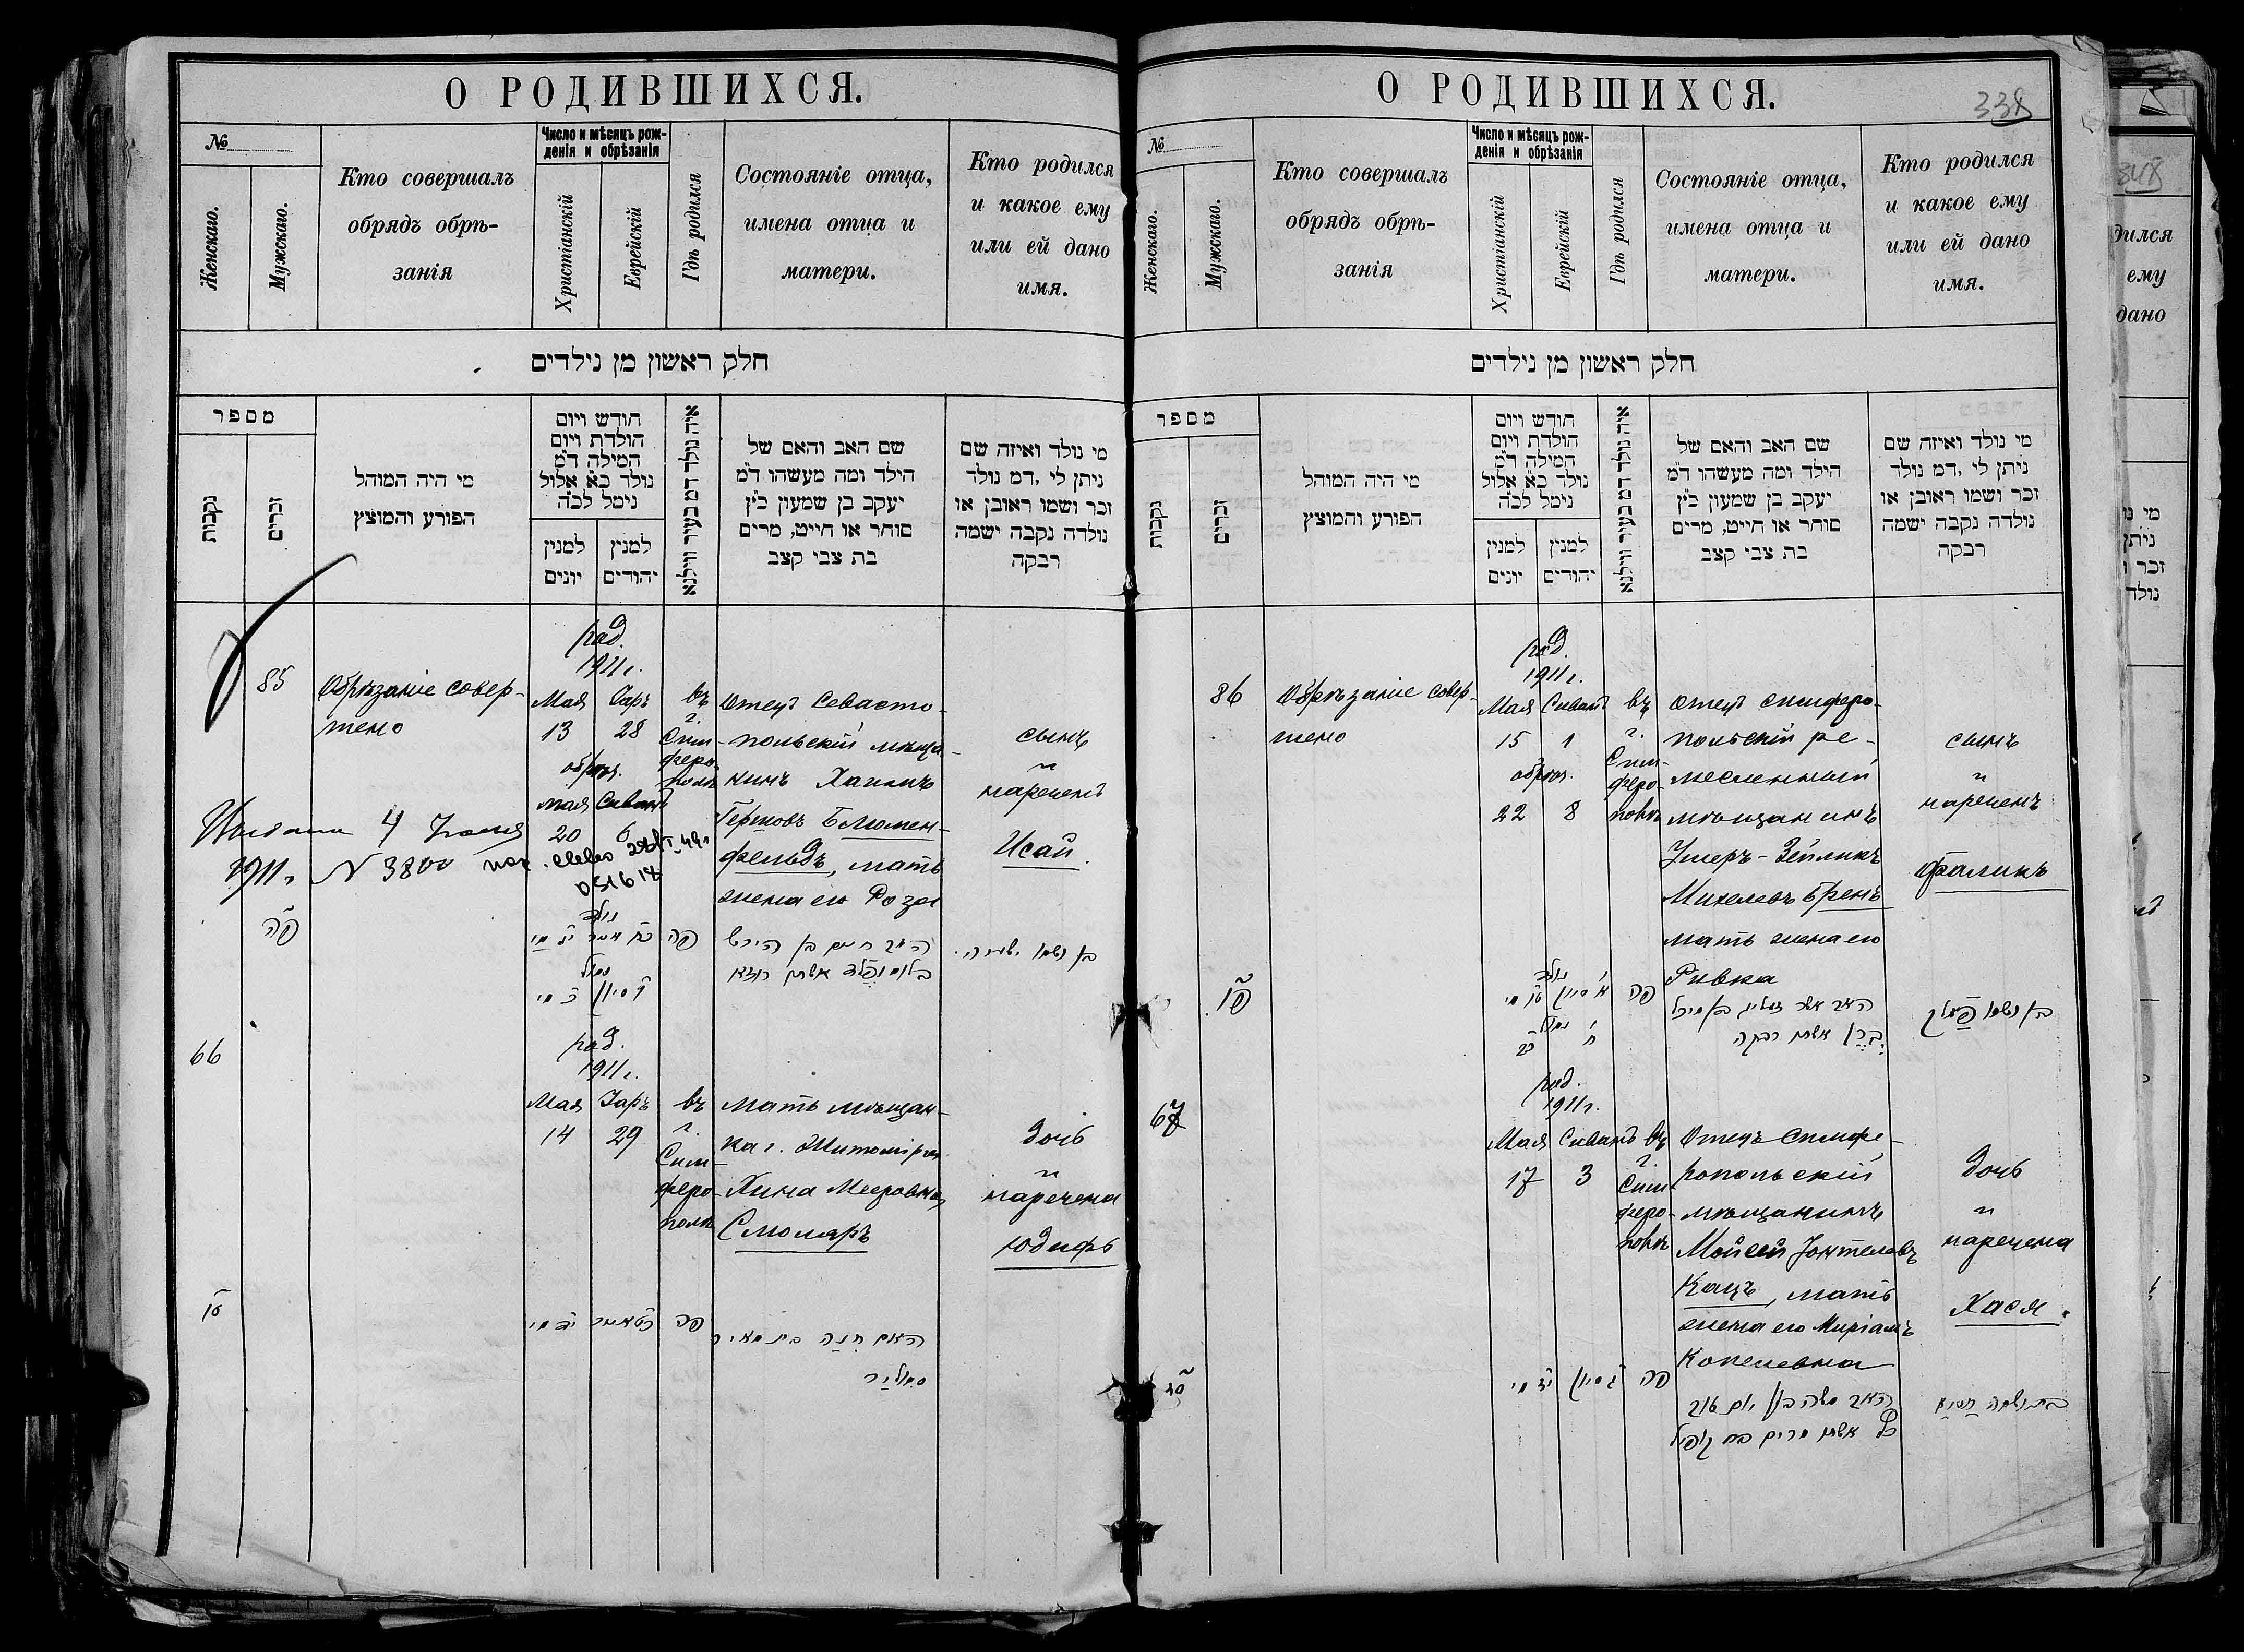 О РОДИВШИХСЯ.
№
Женскаго.
Мужскаго.
Кто совершалъ
обрядъ обрѣ-
занія
Число и мѣсяцъ рож-
денія и обрѣзанія
Христіанскій
Еврейскій
Гдѣ родился
Состояніе отца,
имена отца и
матери.
Кто родился
и какое ему
или ей дано
имя.
חלק ראשון מן נילדים
מספר
נקבות
זכרים
מי היה המוהל
הפורע והמוצץ
חודש ויום
הולדת ויום
המילה ד״מ
נולד כ״א אלול
נימל לכ״ה
למנין
יונים
למנין
יהודים
איה נולד דמ בעיר ווילנא
שם האב והאם של
הילד ומה מעשהו ד״מ
יעקב בן שמעון כ״ץ
סוחר או חייט, מרים
בת צבי קצב
מי נולד ואיזה שם
ניתן לי, דמ נולד
זכר ושמו ראובן או
נולדה נקבה ישמה
רבקה
85
Обрѣзаніе совер-
шено
род.
1911 г.
Мая
13
28
обрѣз.
мая Сиванъ
20 6
въ
г.
Сим-
феро-
полѣ
Отецъ Севасто-
польскій мѣща-
нинъ Хаимъ
Гершовъ Блюмен-
фельдъ, мать
жена его Роза
сынъ
нареченъ
Исай.
4
1911 г. N 3800
פה
פה
66
род.
1911 г.
Мая Іаръ
14 29
въ
г.
Сим-
феро-
полѣ
Мать мѣщан-
ка г. Житоміра
Хина Мееровна
Смоляръ
дочь
наречена
Юдифь
פה
האם חינה בת מאיר
סמוליר
О РОДИВШИХСЯ.
338
№
Женскаго.
Мужскаго.
Кто совершалъ
обрядъ обрѣ-
занія
Число и мѣсяцъ рож-
денія и обрѣзанія
Христіанскій
Еврейскій
Гдѣ родился
Состояніе отца,
имена отца и
матери.
Кто родился
и какое ему
или ей дано
имя.
חלק ראשון מן נילדים
מספר
נקבות
זכרים
מי היה המוהל
הפורע והמוצץ
חודש ויום
הולדת ויום
המילה ד״מ
נולד כ״א אלול
נימל לכ״ה
למנין
יונים
למנין
יהודים
איה נולד דמ בעיר ווילנא
שם האב והאם של
הילד ומה מעשהו ד״מ
יעקב בן שמעון כ״ץ
סוחר או חייט, מרים
בת צבי קצב
מי נולד ואיזה שם
ניתן לי, דמ נולד
זכר ושמו ראובן או
נולדה נקבה ישמה
רבקה
86
Обрѣзаніе совер-
шено
род.
1911 г.
Мая Сиванъ
15 1
обрѣз.
22 8
въ
г.
Сим-
феро-
полѣ
Отецъ симферо-
польскій ре-
месленный
мѣщанинъ
Ушеръ-Зейликъ
Михелевъ Бренъ
мать жена его
Ривка
сынъ
нареченъ
Фаликъ
פו
פה
67
род.
1911 г.
Мая Сиванъ
17 3
въ
г.
Сим-
феро-
полѣ
Отецъ Симфе-
ропольскій
мѣщанинъ
Мойсей Јонтелевъ
Кацъ, мать
жена его Миріамъ
Копелевна
дочь
наречена
Хася.
פה
האב משה בן יום טוב
כץ אשתו מרים בת קופיל
348
дился
ему
дано